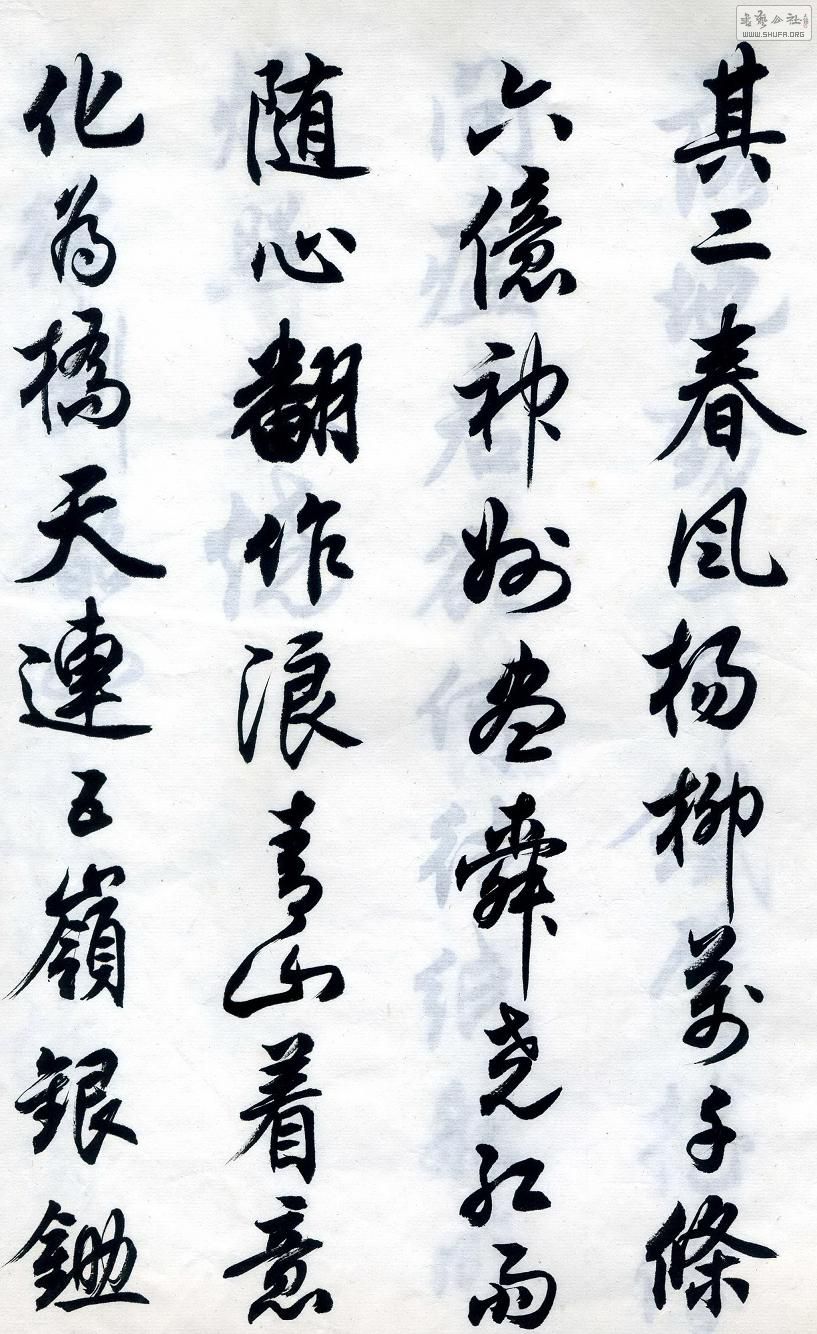 書藝公社
WWW.SHUFA.ORG
其二春风杨柳萬千條
六億神州盡舜尧红雨
随心翻作浪青山着意
化為橋天連五嶺銀鋤